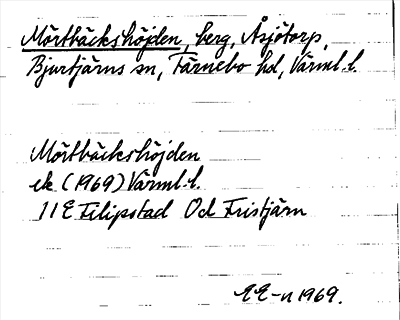 Mörtbäckshöjden, berg, Åsjötorp,
Bjurtjärns sn, Färnebo hd, Värml. l.
Mörtbäckshöjden
ek. (1969) Värml. l.
11E Filipstad Od Fristjärn
EE-n 1969.